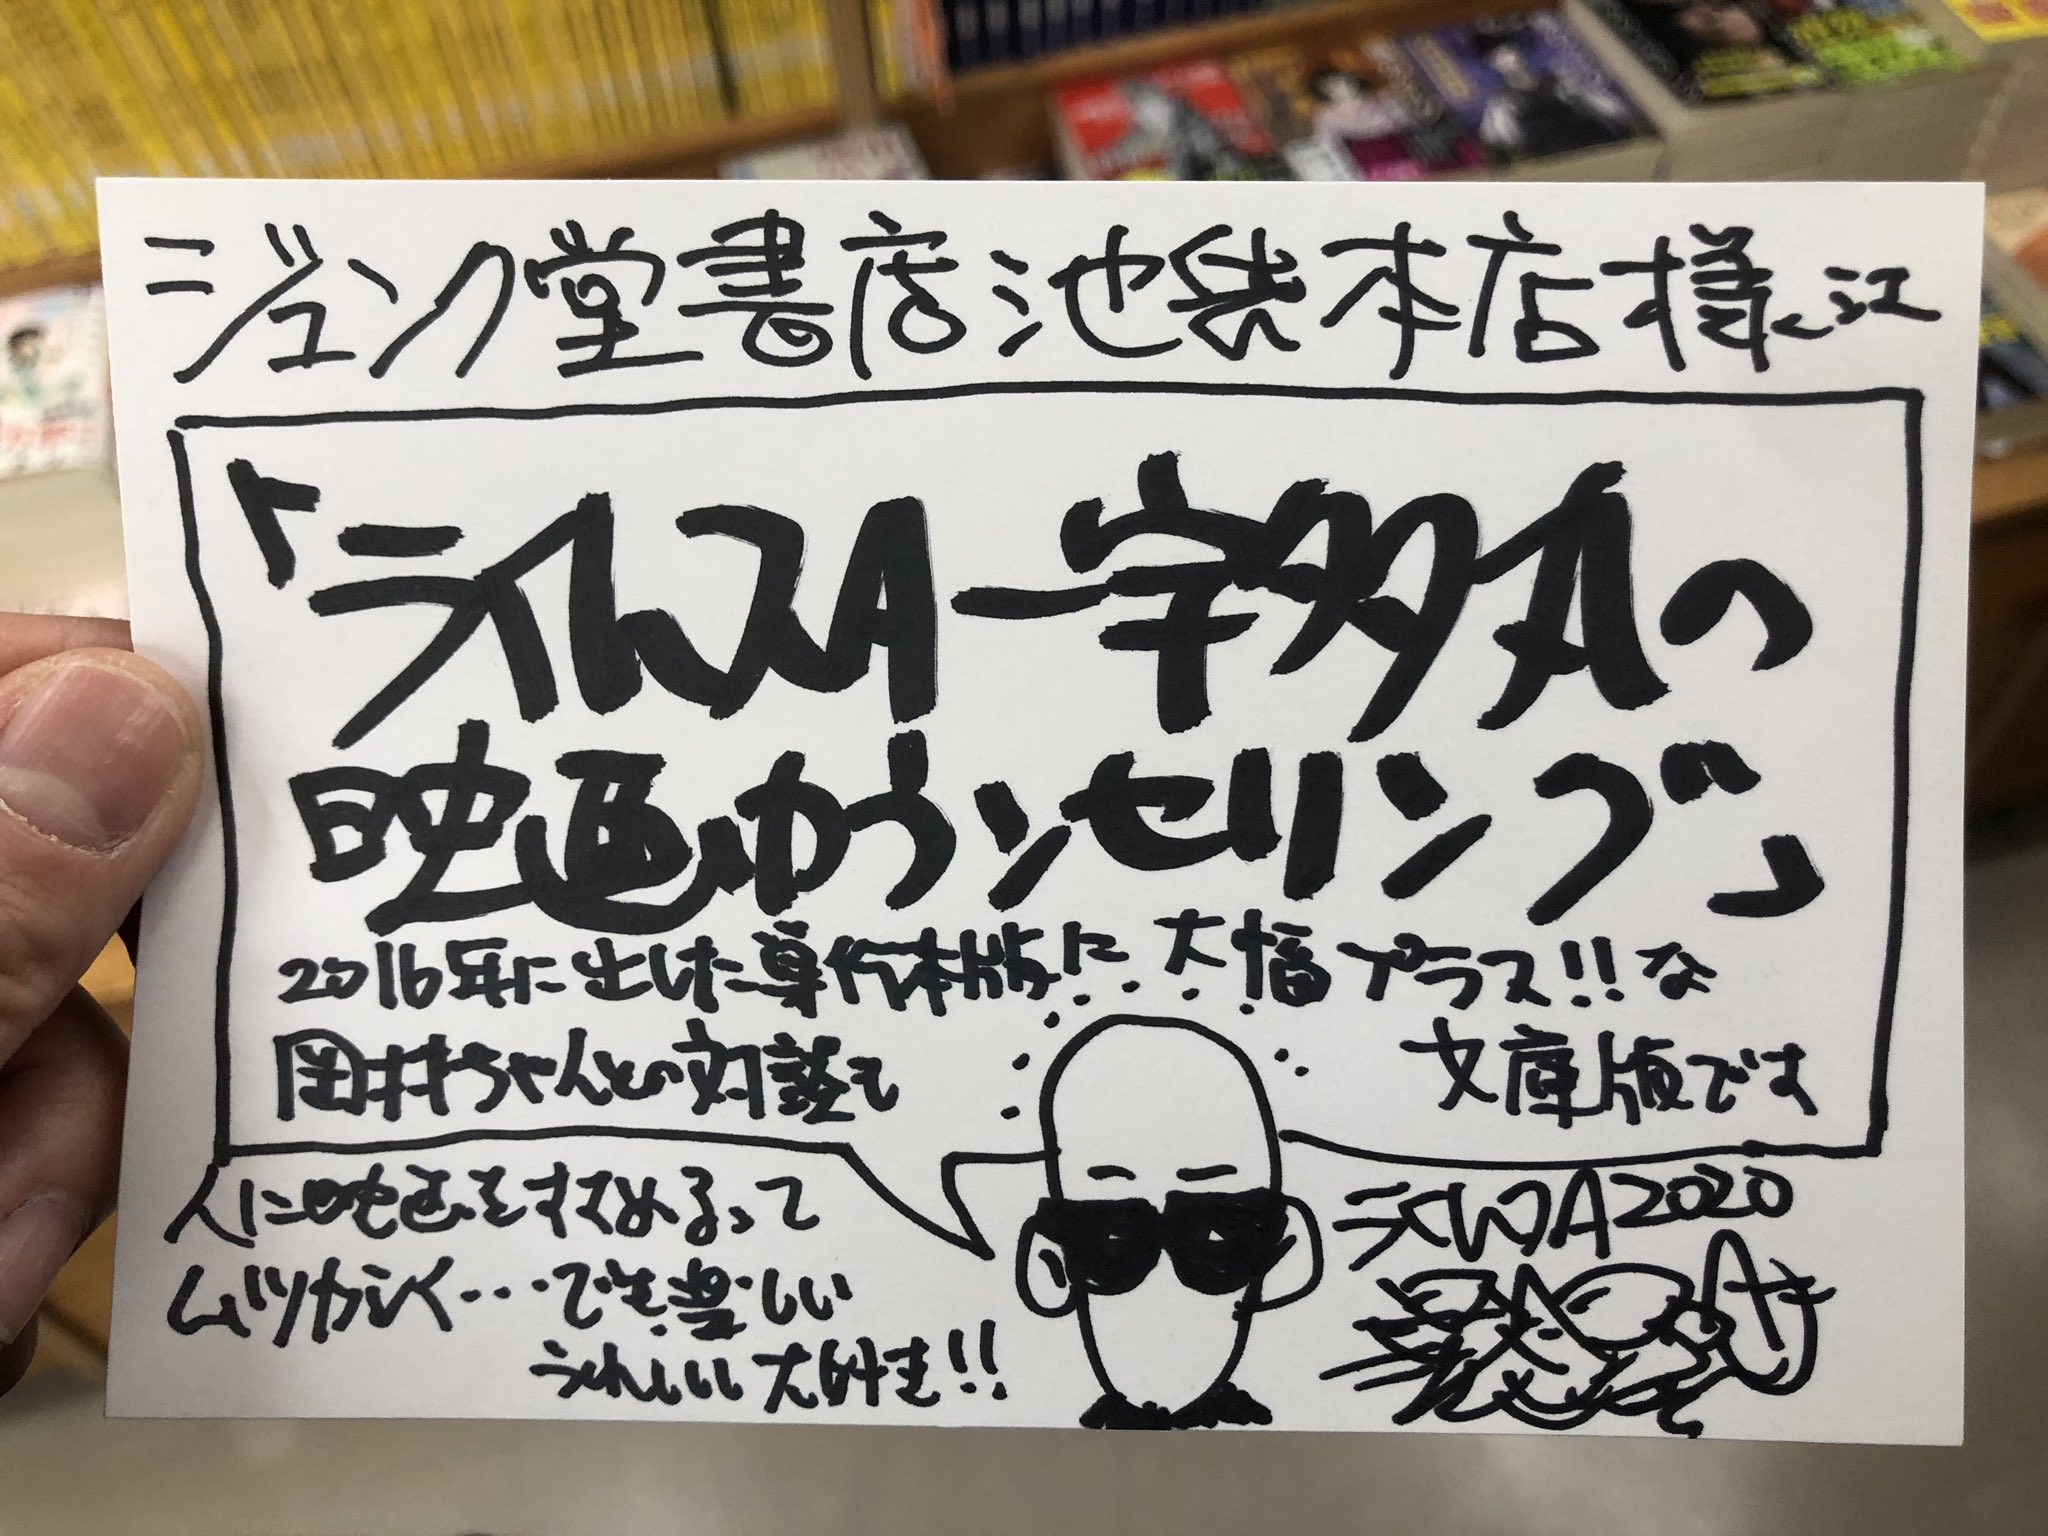 ジュンク堂書店池袋本店様江
「ライムスター宇多丸の
映画カウンセリング」
2016年に出した単行本版に大幅プラス!!な
文庫版です
岡井ちゃんとの対談も
人に映画をすすめるって
ムツカシイ…でも楽しい
うれしい大好き!!
ライムスター2020